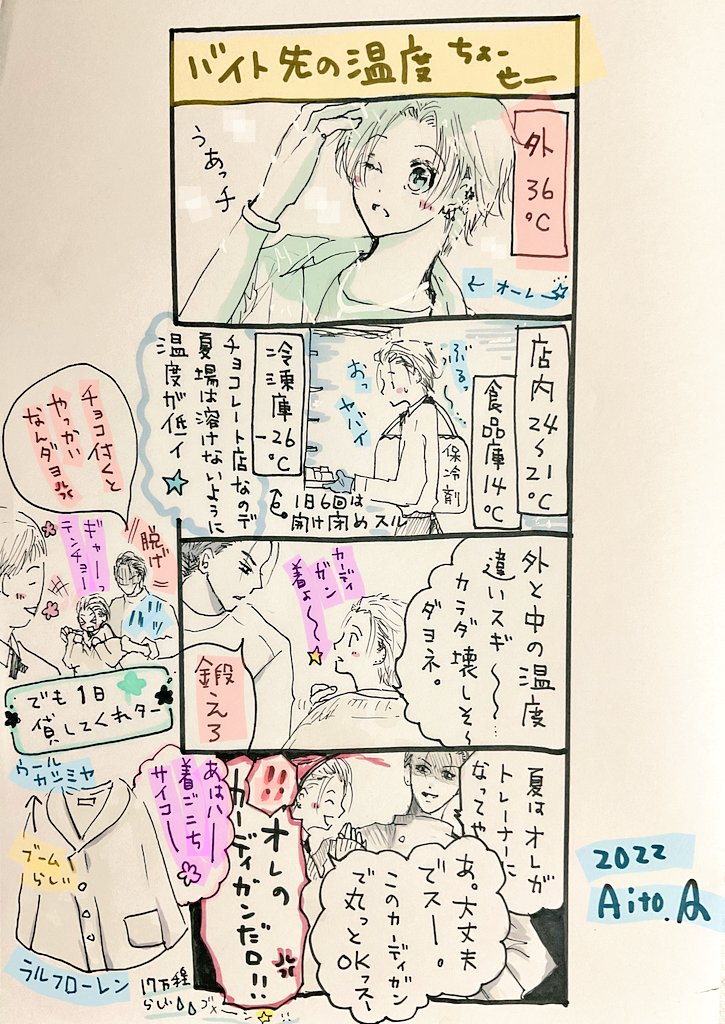 バイト先の温度ちょーせー
外 36℃
うあっチ
← オーレ
店内24〜21℃
食品庫14℃
冷凍庫-26℃
ぶるっ…
おっ
ヤバイ
保冷剤
1日6回は
開け閉めスル
チョコレート店なのデ
夏場は溶けないように
温度が低イ
外と中の温度
違いスギ〜〜…
カラダ壊しそ〜
ダヨネ。
カーディガン
着よ〜〜
鍛えろ
チョコ付くと
やっかい
なんダヨ
脱げ
ギャーっ
テンチョー
でも1日
貸してくれター
夏はオレが
トレーナーに
なってや
あ。大丈夫
でスー。
このカーディガン
で丸っと
OKっスー
!!
オレの
カーディガンだロ!!
あはハー
着ごこち
サイコー
ウール
カシミヤ
ブーム
らしい
ラルフローレン
17万程
らしい
ゴメーン!!
2022
Aito.A